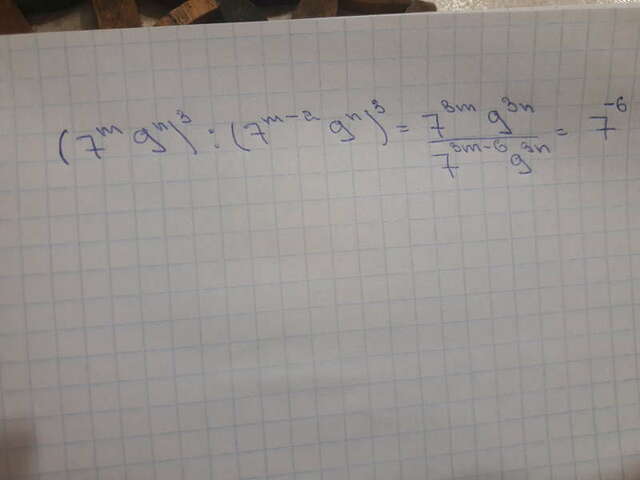 (7^m 9^n)^3 : (7^{m-2} 9^n)^3 = \frac{7^{3m} 9^{3n}}{7^{3m-6} 9^{3n}} = 7^{-6}